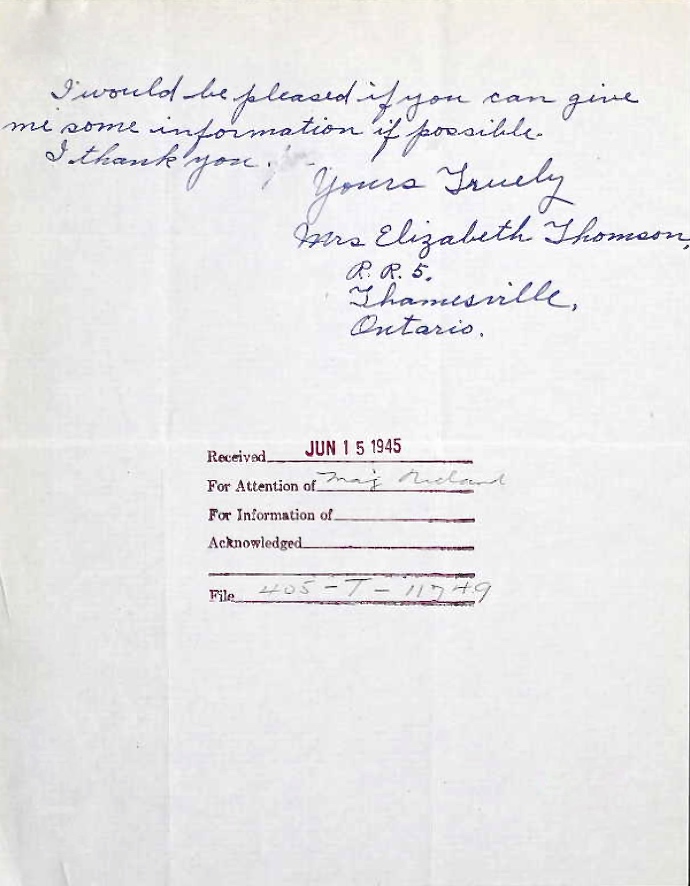 I would be pleased if you can give
me some information if possible.
I thank you.
Yours Truely
Mrs Elizabeth Thomson,
R. R. 5.
Thamesville,
Ontario.
Received JUN 15 1945
For Attention of Maj
For Information of
Acknowledged
File 405-T-11749